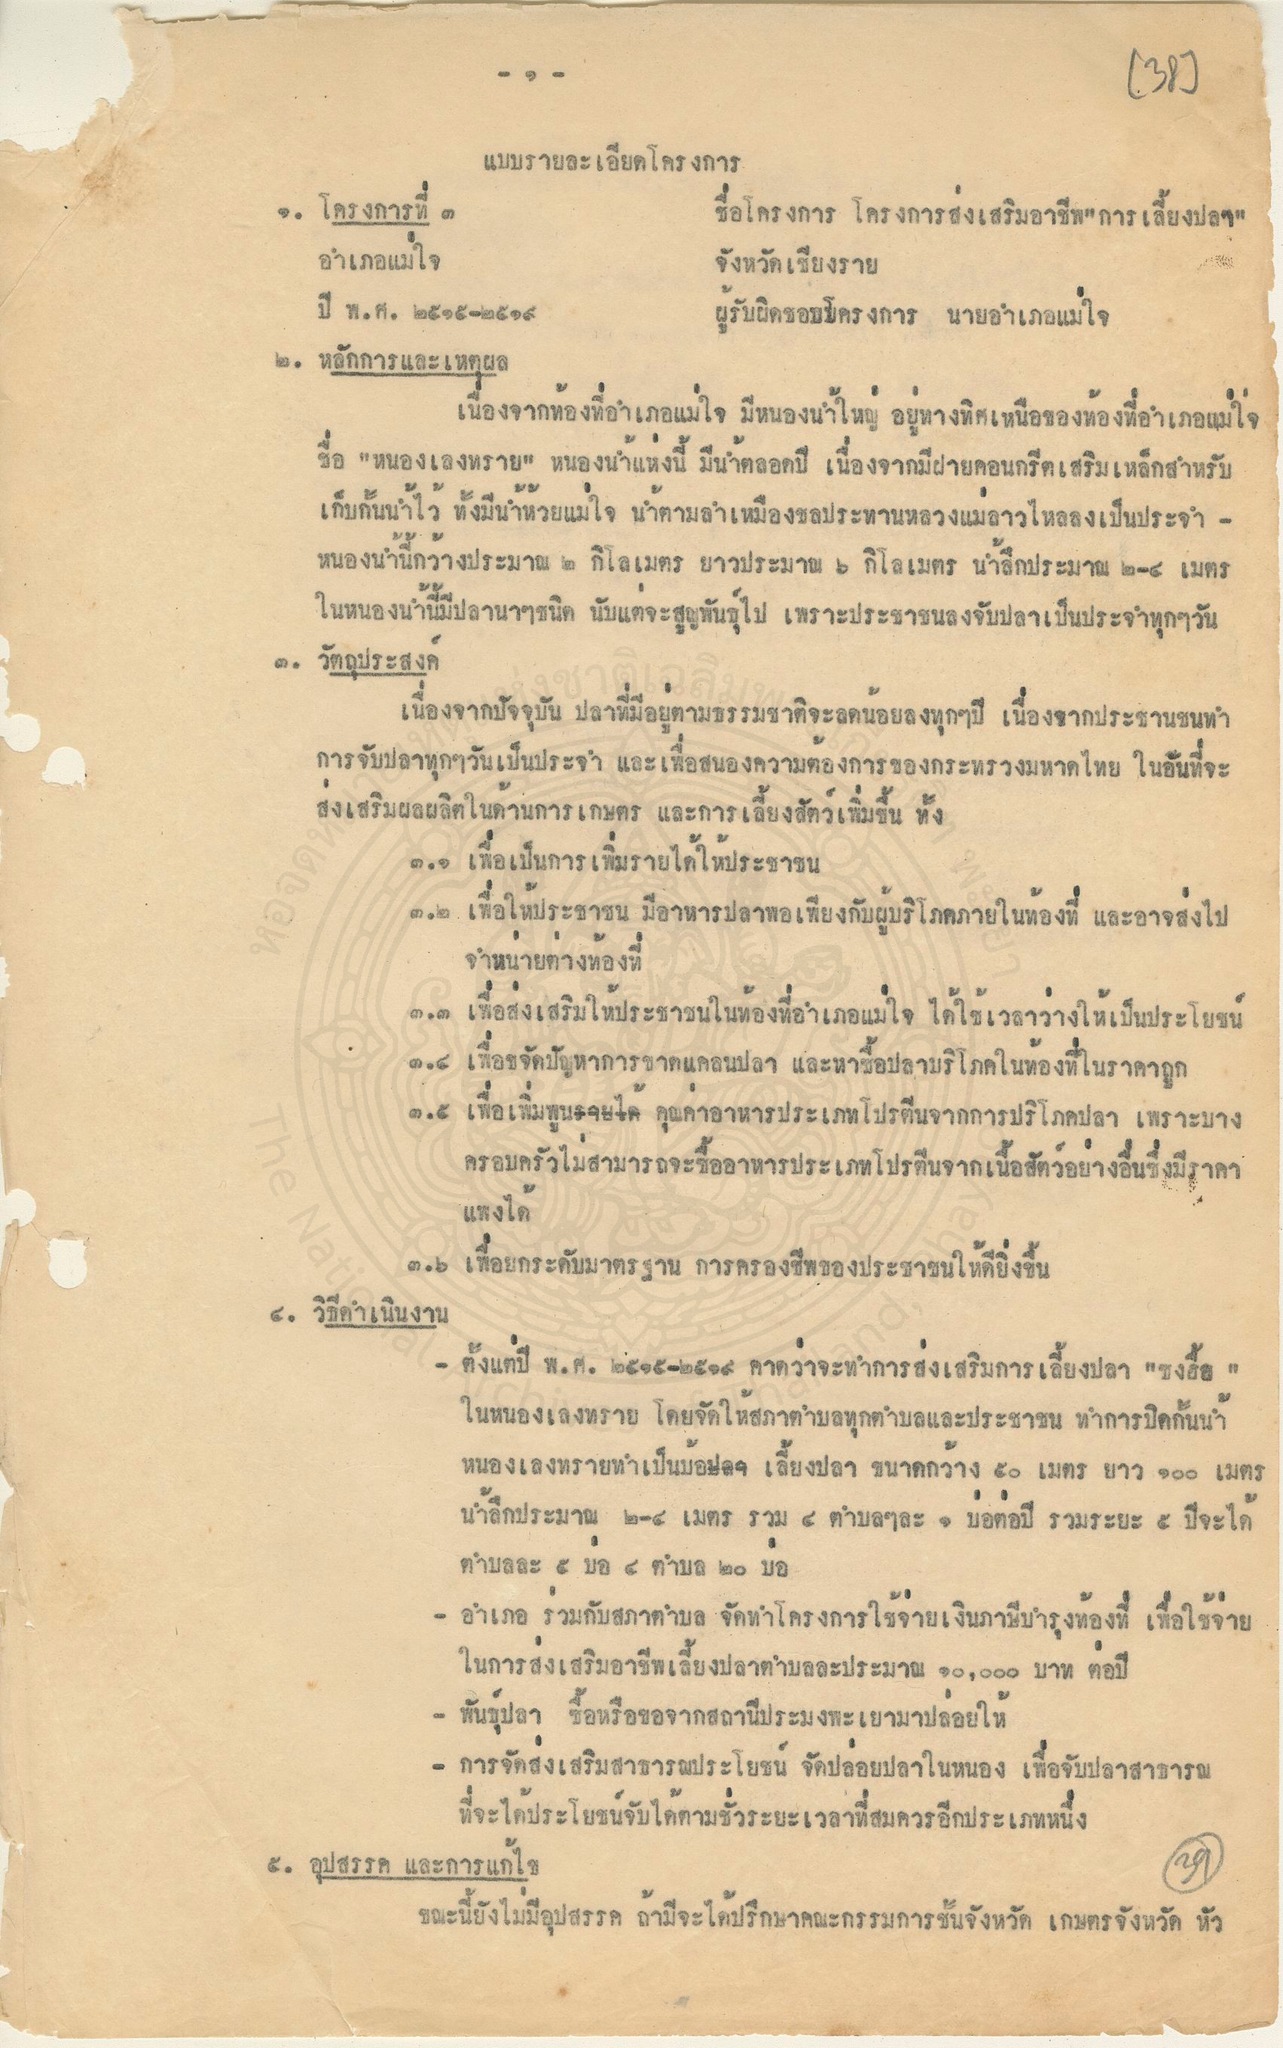 - ๑ -
[38]
แบบรายละเอียดโครงการ
๑. โครงการที่ ๓ ชื่อโครงการ โครงการส่งเสริมอาชีพ"การเลี้ยงปลา"
อำเภอแม่ใจ จังหวัดเชียงราย
ปี พ.ศ. ๒๕๑๕-๒๕๑๙ ผู้รับผิดชอบโครงการ นายอำเภอแม่ใจ
๒. หลักการและเหตุผล
เนื่องจากท้องที่อำเภอแม่ใจ มีหนองน้ำใหญ่ อยู่ทางทิศเหนือของท้องที่อำเภอแม่ใจ
ชื่อ "หนองเลงทราย" หนองน้ำแห่งนี้ มีน้ำตลอดปี เนื่องจากมีฝายคอนกรีตเสริมเหล็กสำหรับ
เก็บกั้นน้ำไว้ ทั้งมีน้ำห้วยแม่ใจ น้ำตามลำเหมืองชลประทานหลวงแม่ลาวไหลลงเป็นประจำ -
หนองน้ำนี้กว้างประมาณ ๒ กิโลเมตร ยาวประมาณ ๖ กิโลเมตร น้ำลึกประมาณ ๒-๔ เมตร
ในหนองน้ำนี้มีปลานาๆชนิด นับแต่จะสูญพันธุ์ไป เพราะประชาชนลงจับปลาเป็นประจำทุกๆวัน
๓. วัตถุประสงค์
เนื่องจากปัจจุบัน ปลาที่มีอยู่ตามธรรมชาติจะลดน้อยลงทุกๆปี เนื่องจากประชานชนทำ
การจับปลาทุกๆวันเป็นประจำ และเพื่อสนองความต้องการของกระทรวงมหาดไทย ในอันที่จะ
ส่งเสริมผลผลิตในด้านการเกษตร และการเลี้ยงสัตว์เพิ่มขึ้น ทั้ง
๓.๑ เพื่อเป็นการเพิ่มรายได้ให้ประชาชน
๓.๒ เพื่อให้ประชาชน มีอาหารปลาพอเพียงกับผู้บริโภคภายในท้องที่ และอาจส่งไป
จำหน่ายต่างท้องที่
๓.๓ เพื่อส่งเสริมให้ประชาชนในท้องที่อำเภอแม่ใจ ได้ใช้เวลาว่างให้เป็นประโยชน์
๓.๔ เพื่อขจัดปัญหาการขาดแคลนปลา และหาซื้อปลาบริโภคในท้องที่ในราคาถูก
๓.๕ เพื่อเพิ่มพูนรายได้ คุณค่าอาหารประเภทโปรตีนจากการบริโภคปลา เพราะบาง
ครอบครัวไม่สามารถจะซื้ออาหารประเภทโปรตีนจากเนื้อสัตว์อย่างอื่นซึ่งมีราคา
แพงได้
๓.๖ เพื่อยกระดับมาตรฐาน การครองชีพของประชาชนให้ดียิ่งขึ้น
๔. วิธีดำเนินงาน
- ตั้งแต่ปี พ.ศ. ๒๕๑๕-๒๕๑๙ คาดว่าจะทำการส่งเสริมการเลี้ยงปลา "
ในหนองเลงทราย โดยจัดให้สภาตำบลทุกตำบลและประชาชน ทำการปิดกั้นน้ำ
หนองเลงทรายทำเป็นบ้อปลา เลี้ยงปลา ขนาดกว้าง ๕๐ เมตร ยาว ๑๐๐ เมตร
น้ำลึกประมาณ ๒-๔ เมตร รวม ๔ ตำบลๆละ ๑ บ่อต่อปี รวมระยะ ๕ ปีจะได้
ตำบลละ ๕ บ่อ ๔ ตำบล ๒๐ บ่อ
- อำเภอ ร่วมกับสภาตำบล จัดทำโครงการใช้จ่ายเงินภาษีบำรุงท้องที่ เพื่อใช้จ่าย
ในการส่งเสริมอาชีพเลี้ยงปลาตำบลละประมาณ ๑๐,๐๐๐ บาท ต่อปี
- พันธุ์ปลา ซื้อหรือขอจากสถานีประมงพะเยามาปล่อยให้
- การจัดส่งเสริมสาธารณประโยชน์ จัดปล่อยปลาในหนอง เพื่อจับปลาสาธารณ
ที่จะได้ประโยชน์จับได้ตามชั่วระยะเวลาที่สมควรอีกประเภทหนึ่ง
๕. อุปสรรค และการแก้ไข
ขณะนี้ยังไม่มีอุปสรรค ถ้ามีจะได้ปรึกษาคณะกรรมการชั้นจังหวัด เกษตรจังหวัด หัว